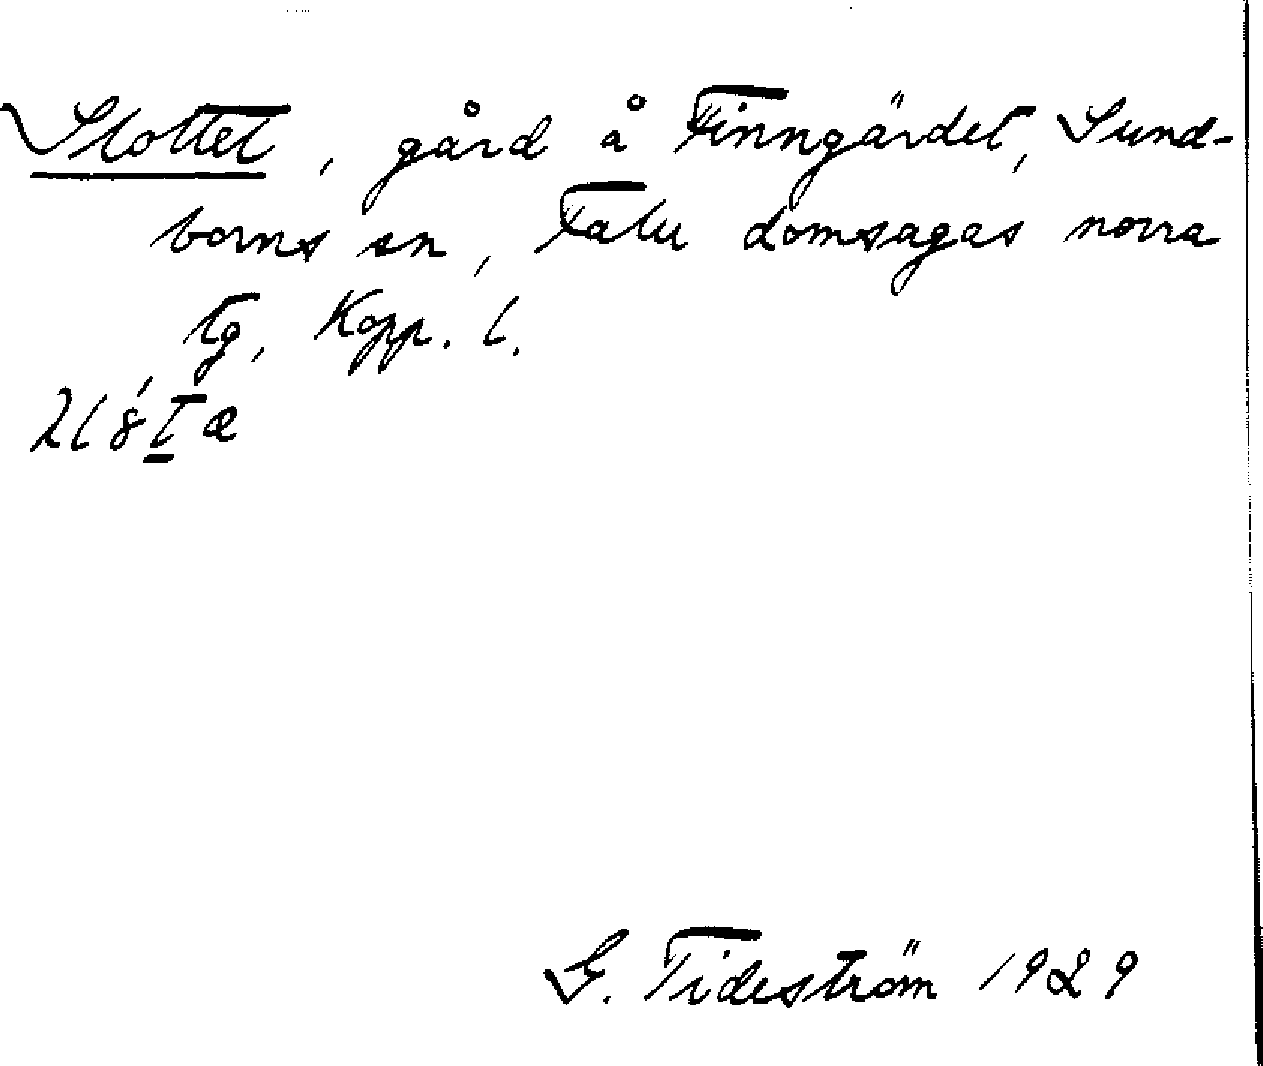 Slottet, gård å Finngärdet, Sund-
borns sn, Falu domsagas norra
tg, Kopp. l.
G. Tideström 1929